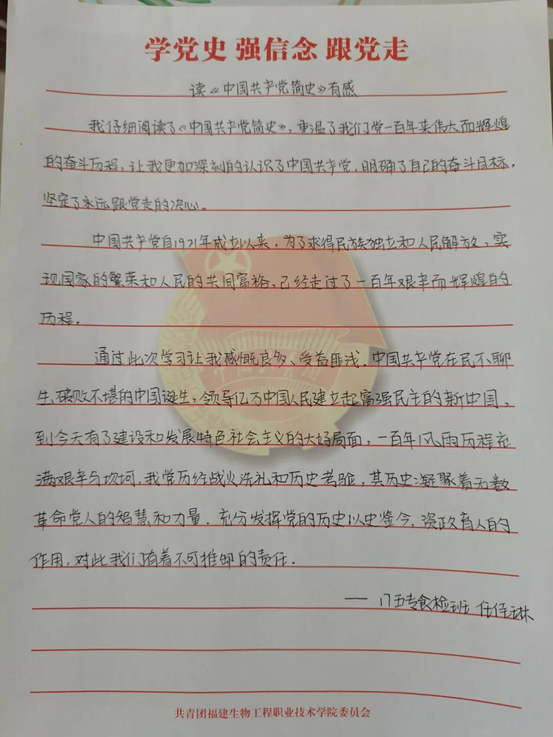 学党史 强信念 跟党走
读《中国共产党简史》有感
我仔细阅读了《中国共产党简史》，重温了我们党一百年来伟大而辉煌
的奋斗历程，让我更加深刻的认识了中国共产党，明确了自己的奋斗目标，
坚定了永远跟党走的决心。
中国共产党自1921年成立以来，为了求得民族独立和人民解放，实
现国家的繁荣和人民的共同富裕，已经走过了一百年艰辛而辉煌的
历程。
通过此次学习让我感慨良多、受益匪浅，中国共产党在民不聊
生、破败不堪的中国诞生，领导亿万中国人民建立起富强民主的新中国，
到今天有了建设和发展特色社会主义的大好局面，一百年风雨历程充
满艰辛与坎坷，我党历经战火洗礼和历史考验，其历史凝聚着无数
革命党人的智慧和力量，充分发挥党的历史以史鉴今，资政育人的
作用，对此我们有着不可推卸的责任．
—— 17五专食检班 任
共青团福建生物工程职业技术学院委员会